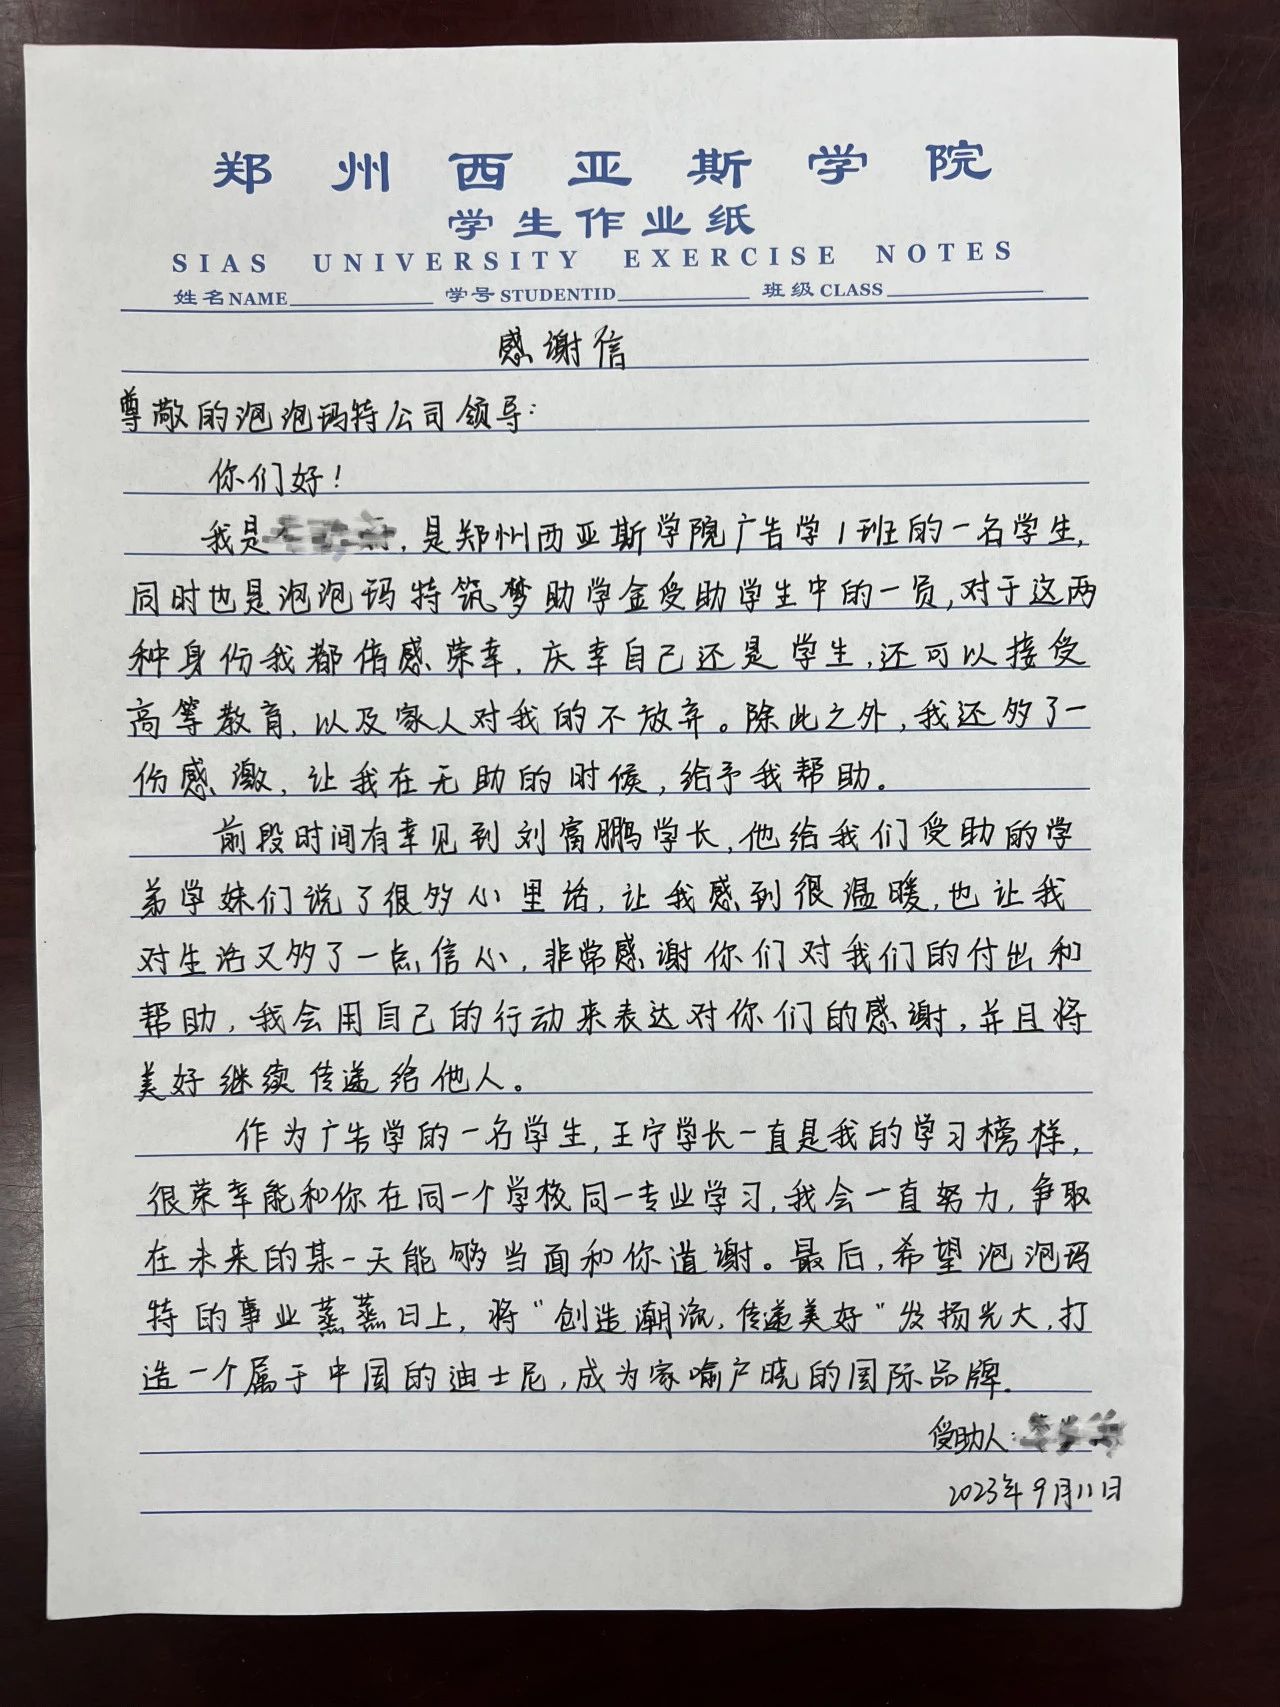 郑州西亚斯学院
学生作业纸
SIAS UNIVERSITY EXERCISE NOTES
姓名NAME 学号STUDENTID 班级CLASS
感谢信
尊敬的泡泡玛特公司领导:
你们好!
我是 ,是郑州西亚斯学院广告学1班的一名学生,
同时也是泡泡玛特筑梦助学金受助学生中的一员,对于这两
种身份我都倍感荣幸,庆幸自己还是学生,还可以接受
高等教育,以及家人对我的不放弃。除此之外,我还多了一
份感激,让我在无助的时候,给予我帮助。
前段时间有幸见到刘富鹏学长,他给我们受助的学
弟学妹们说了很多心里话,让我感到很温暖,也让我
对生活又多了一点信心,非常感谢你们对我们的付出和
帮助,我会用自己的行动来表达对你们的感谢,并且将
美好继续传递给他人。
作为广告学的一名学生,王宁学长一直是我的学习榜样,
很荣幸能和你在同一个学校同一专业学习,我会一直努力,争取
在未来的某一天能够当面和你道谢。最后,希望泡泡玛
特的事业蒸蒸日上,将"创造潮流,传递美好"发扬光大,打
造一个属于中国的迪士尼,成为家喻户晓的国际品牌.
受助人:
2023年9月11日